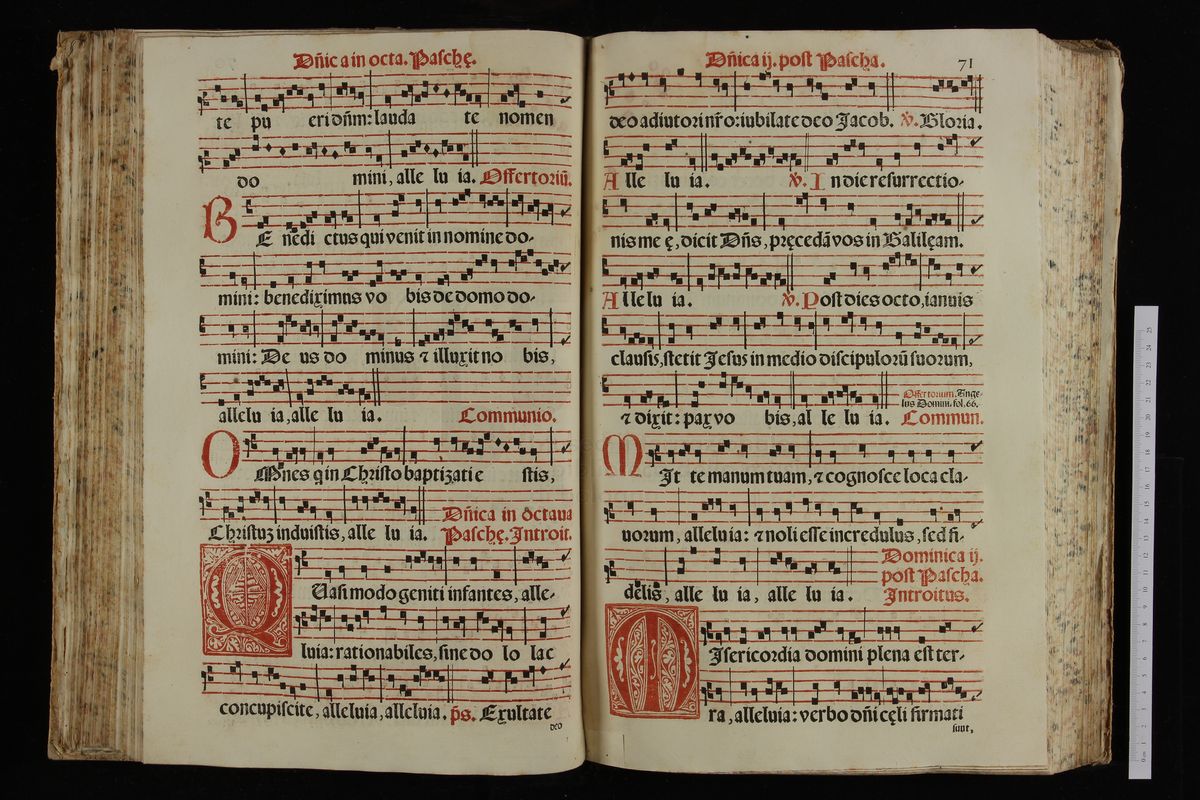 Dñica in octa. Paschę.
te pu eri dñm: lauda te nomen
do mini, alle lu ia. Offertoriũ.
BE nedi ctus qui venit in nomine do-
mini: benediximus vo bis de domo do-
mini: De us do minus ⁊ illuxit no bis,
allelu ia, alle lu ia. Communio.
OMnes q in Christo baptizati e stis,
Christuz induistis, alle lu ia. Dñica in Octaua
Paschę. Introit.
QUasi modo geniti infantes, alle-
luia: rationabiles, sine do lo lac
concupiscite, alleluia, alleluia. p̃s. Exultate
deo
Dñica ij. post Pascha. 71
deo adiutori nr̃o: iubilate deo Jacob. ℣. Gloria.
Alle lu ia. ℣. In die resurrectio-
nis me ę, dicit Dñs, pręcedã vos in Galilęam.
Allelu ia. ℣. Post dies octo, ianuis
clausis, stetit Jesus in medio discipulorũ suorum,
⁊ dixit: pax vo bis, al le lu ia. Offertorium. Ange-
lus Domini. fol. 66.
Commun.
MIt te manum tuam, ⁊ cognosce loca cla-
uorum, alleluia: ⁊ noli esse incredulus, sed fi-
delis, alle lu ia, alle lu ia. Dominica ij.
post Pascha.
Introitus.
MIsericordia domini plena est ter-
ra, alleluia: verbo dñi cęli firmati
sunt,